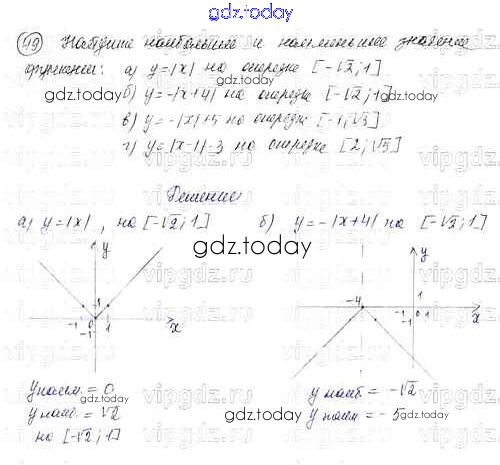 gdz.today
49) Найдите наибольшее и наименьшее значение
функции: а) y=|x| на отрезке [-√2; 1]
gdz.today
б) y=-|x+4| на отрезке [-√2; 1]
в) y=-|x|+5 на отрезке [-1; √3]
г) y=|x-1|-3 на отрезке [2; √5]
Решение
а) y=|x|, на [-√2; 1]
б) y=-|x+4| на [-√2; 1]
gdz.today
y
1
-1 0 1 x
-1
y
-4
1
-1 0 1 x
-1
y наим. = 0
y наиб. = √2
на [-√2; 1]
y наиб = -√2
y наим = -5
gdz.today
gdz.today
vipgdz.ru